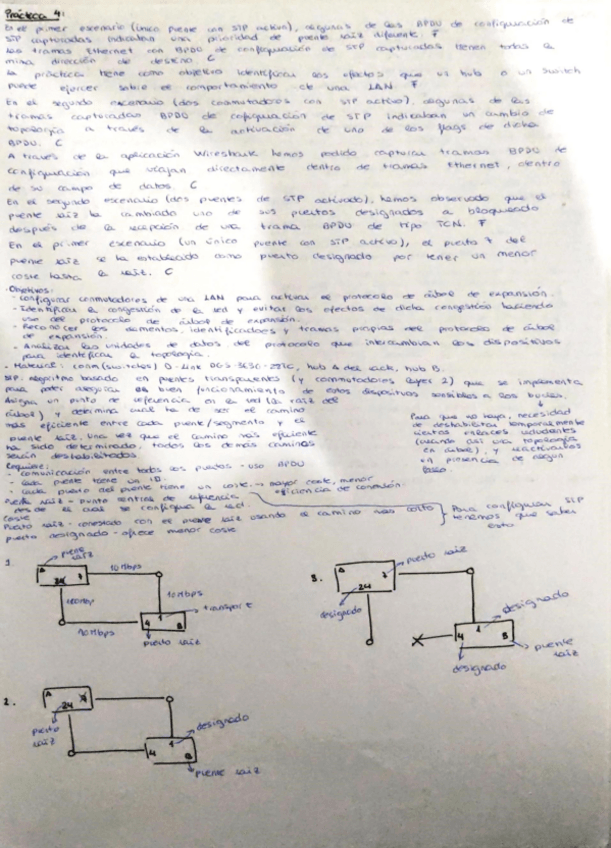 Práctica 4:
En el primer escenario (único puente con STP activo), algunas de las BPDU de configuración de
STP capturadas indicaban una prioridad de puente raíz diferente. F
las tramas Ethernet con BPDU de configuración de STP capturadas tienen todas la
misma dirección de destino. C
la práctica tiene como objetivo identificar los efectos que un hub o un switch
puede ejercer sobre el comportamiento de una LAN. F
En el segundo escenario (dos conmutadores con STP activo), algunas de las
tramas capturadas BPDU de configuración de STP indicaban un cambio de
topología a través de la activación de uno de los flags de dicha
BPDU. C
A través de la aplicación Wireshark hemos podido capturar tramas BPDU de
configuración que viajan directamente dentro de tramas Ethernet, dentro
de su campo de datos. C
En el segundo escenario (dos puentes de STP activado), hemos observado que el
puente raíz ha cambiado uno de sus puertos designados a bloqueado
después de la recepción de una trama BPDU de tipo TCN. F
En el primer escenario (un único puente con STP activo), el puerto 7 del
puente raíz se ha establecido como puerto designado por tener un menor
coste hasta la raíz. C
Objetivos:
- Configurar conmutadores de una LAN para activar el protocolo de árbol de expansión.
- Identificar la congestión de la red y evitar los efectos de dicha congestión haciendo
uso del protocolo de árbol de expansión.
- Reconocer los elementos, identificadores y tramas propias del protocolo de árbol
de expansión.
- Analizar las unidades de datos del protocolo que intercambian los dispositivos
para identificar la topología.
- Material: conm (switches) D-Link, hub A del rack, hub B.
STP: algoritmo basado en puentes transparentes (y conmutadores layer 2) que se implementa
para poder asegurar el buen funcionamiento de estos dispositivos sensibles a los bucles.
Asigna un punto de referencia en la red (la raíz del
árbol) y determina cuál ha de ser el camino
más eficiente entre cada puente/segmento y el
puente raíz. Una vez que el camino más eficiente
ha sido determinado todos los demás caminos
serán deshabilitados
Para que no haya, necesidad
de deshabilitar temporalmente
ciertos enlaces redundantes
(creando así una topología
en árbol), y reactivarlos
en presencia de algún
fallo.
Requiere:
- comunicación entre todos los puentes - uso BPDU
- cada puente tiene un ID.
- cada puerto del puente tiene un coste → mayor coste, menor
eficiencia de conexión.
Puente raíz - punto central de referencia
desde el cual se configura la red.
Coste
Puerto raíz - conectado con el puente raíz usando el camino más corto
puerto designado - ofrece menor coste
Para configurar STP
tenemos que saber
esto
1.
puente
raíz
A
24
7
10Mbps
10Mbps
100Mbp
10Mbps
4
1
B
puerto raíz
3.
A
24
7
puerto raíz
designado
designado
4
1
B
puente
raíz
designado
2.
A
24
puerto
raíz
designado
4
1
B
puente raíz